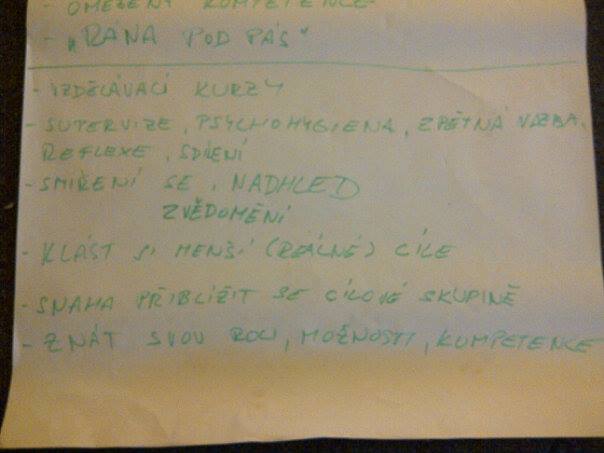 - OMEZENÍ KOMPETENCE
- „RÁNA POD PÁS“
- VZDĚLÁVACÍ KURZY
- SUPERVIZE, PSYCHOHYGIENA, ZPĚTNÁ VAZBA,
REFLEXE, SDÍLENÍ
- SMÍŘENÍ SE, NADHLED
ZVĚDOMĚNÍ
- KLÁST SI MENŠÍ (REÁLNÉ) CÍLE
- SNAHA PŘIBLÍŽIT SE CÍLOVÉ SKUPINĚ
- ZNÁT SVOU ROLI, MOŽNOSTI, KOMPETENCE